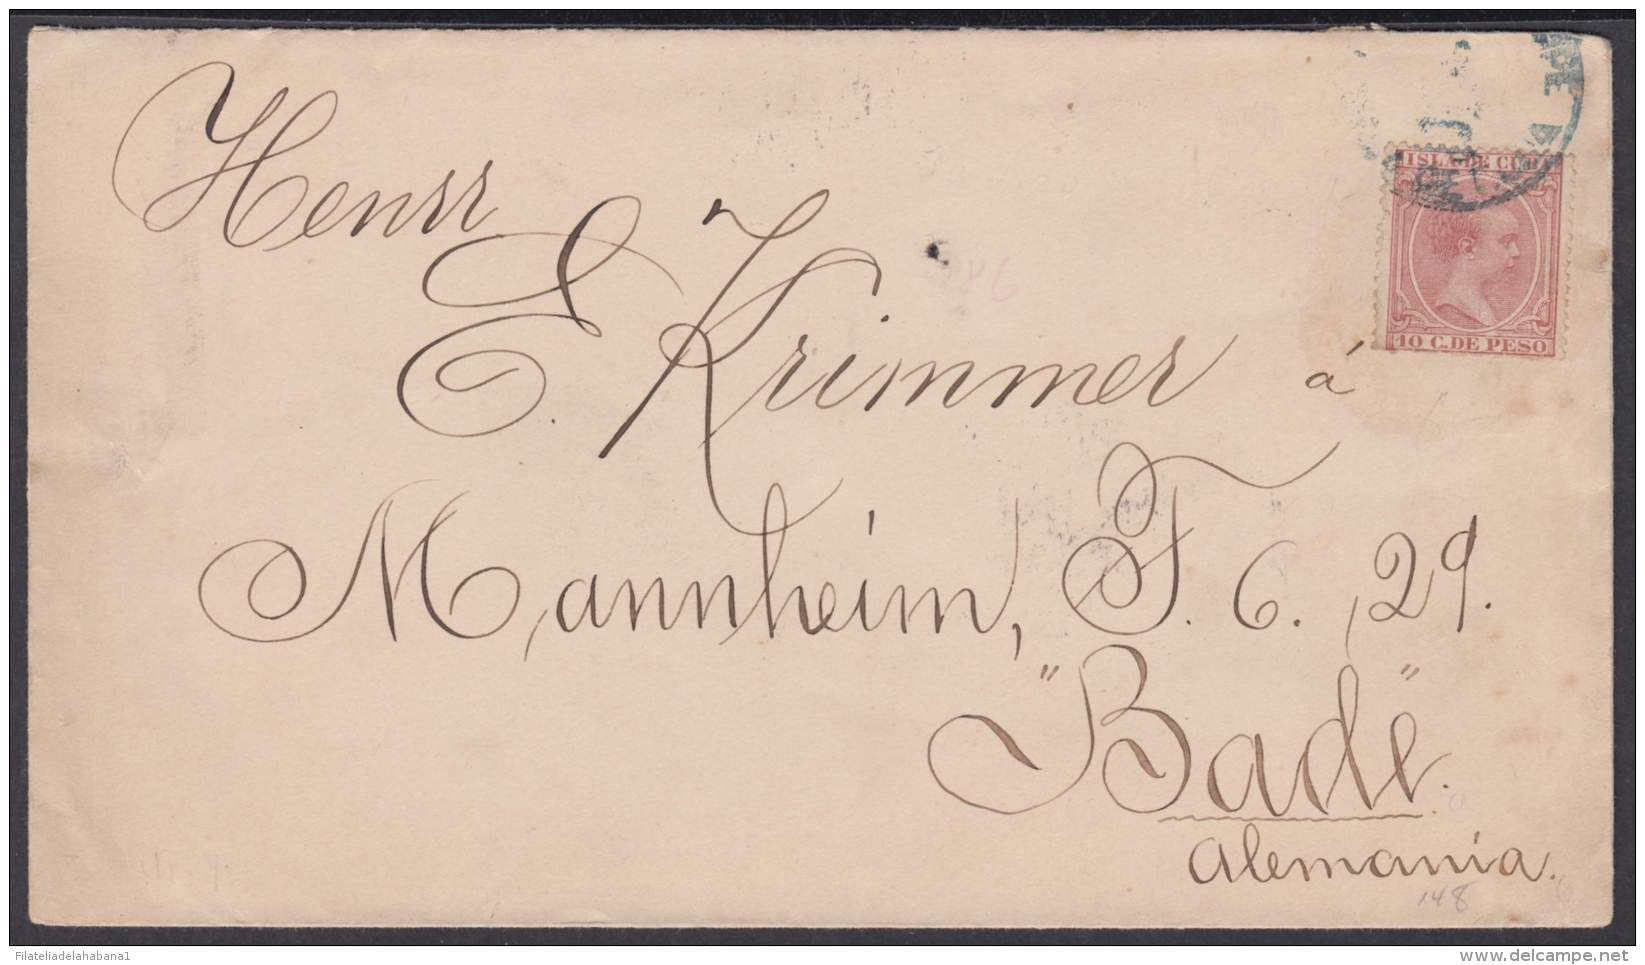 ISLA DE CUBA
10 C. DE PESO
Henrr
E. Krimmer á
Mannheim, T. 6., 29.
"Bade".
Alemania.
148
Filateliadelahabana1
www.delcampe.net